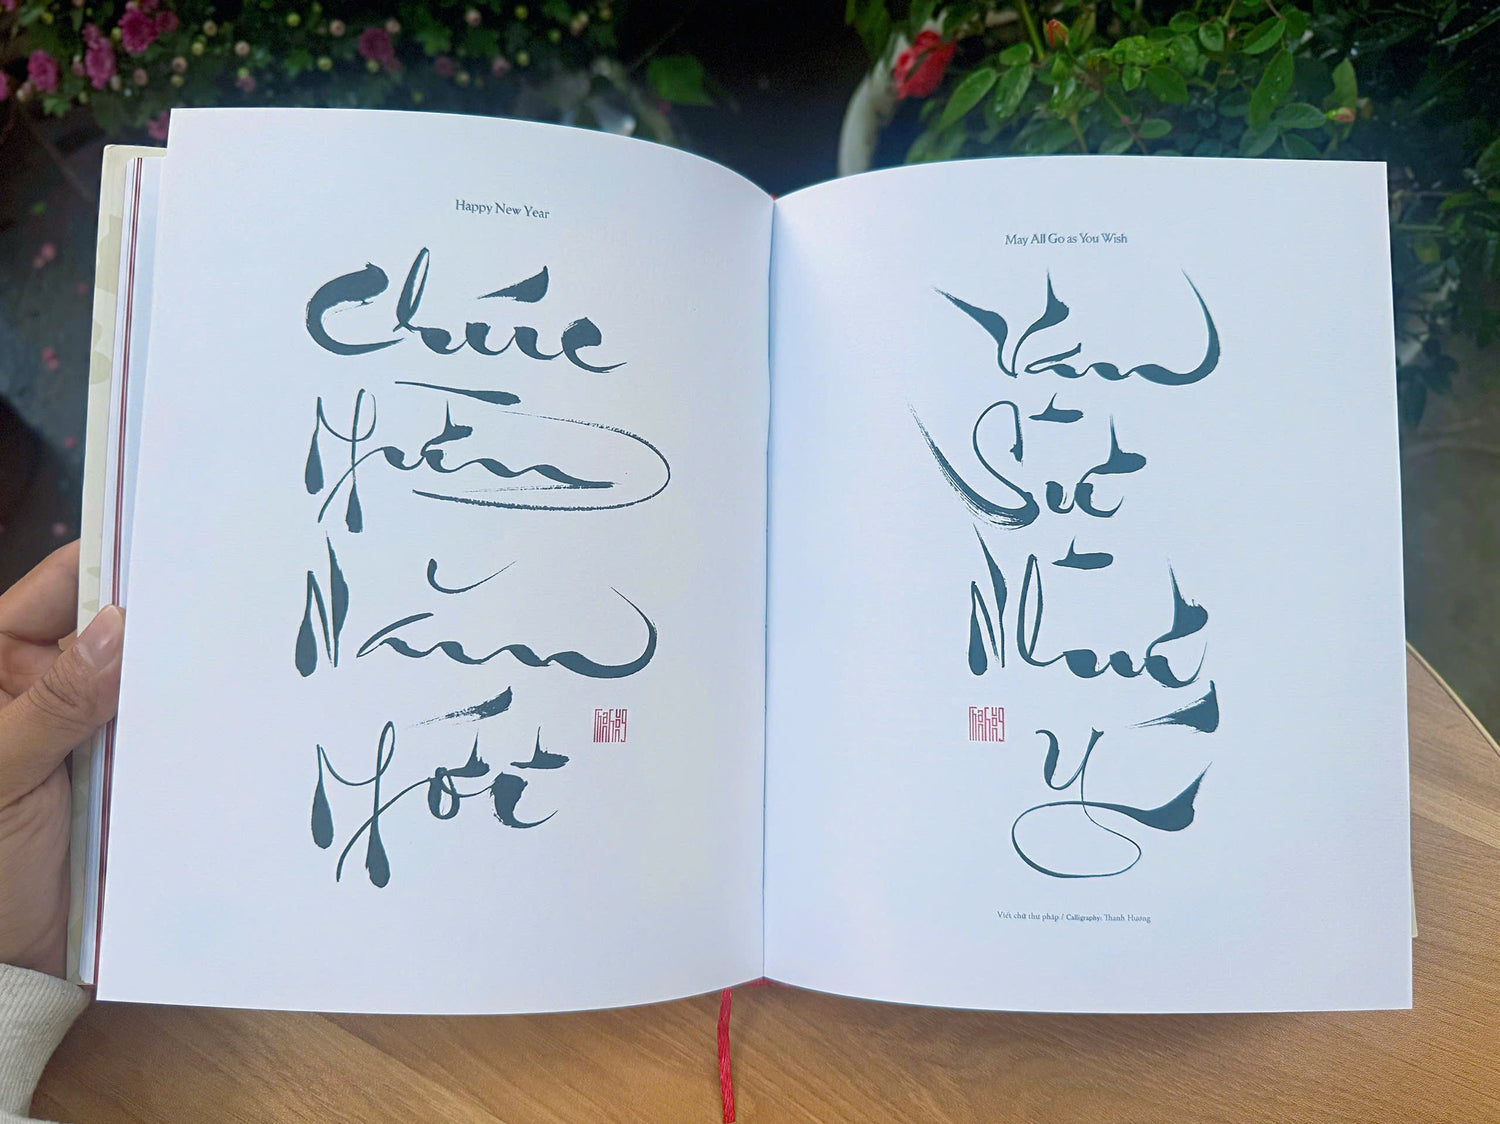 Happy New Year
Chúc
Mừng
Năm
Mới
May All Go as You Wish
Vạn
Sự
Như
Ý
Viết chữ thư pháp / Calligraphy: Thanh Hương